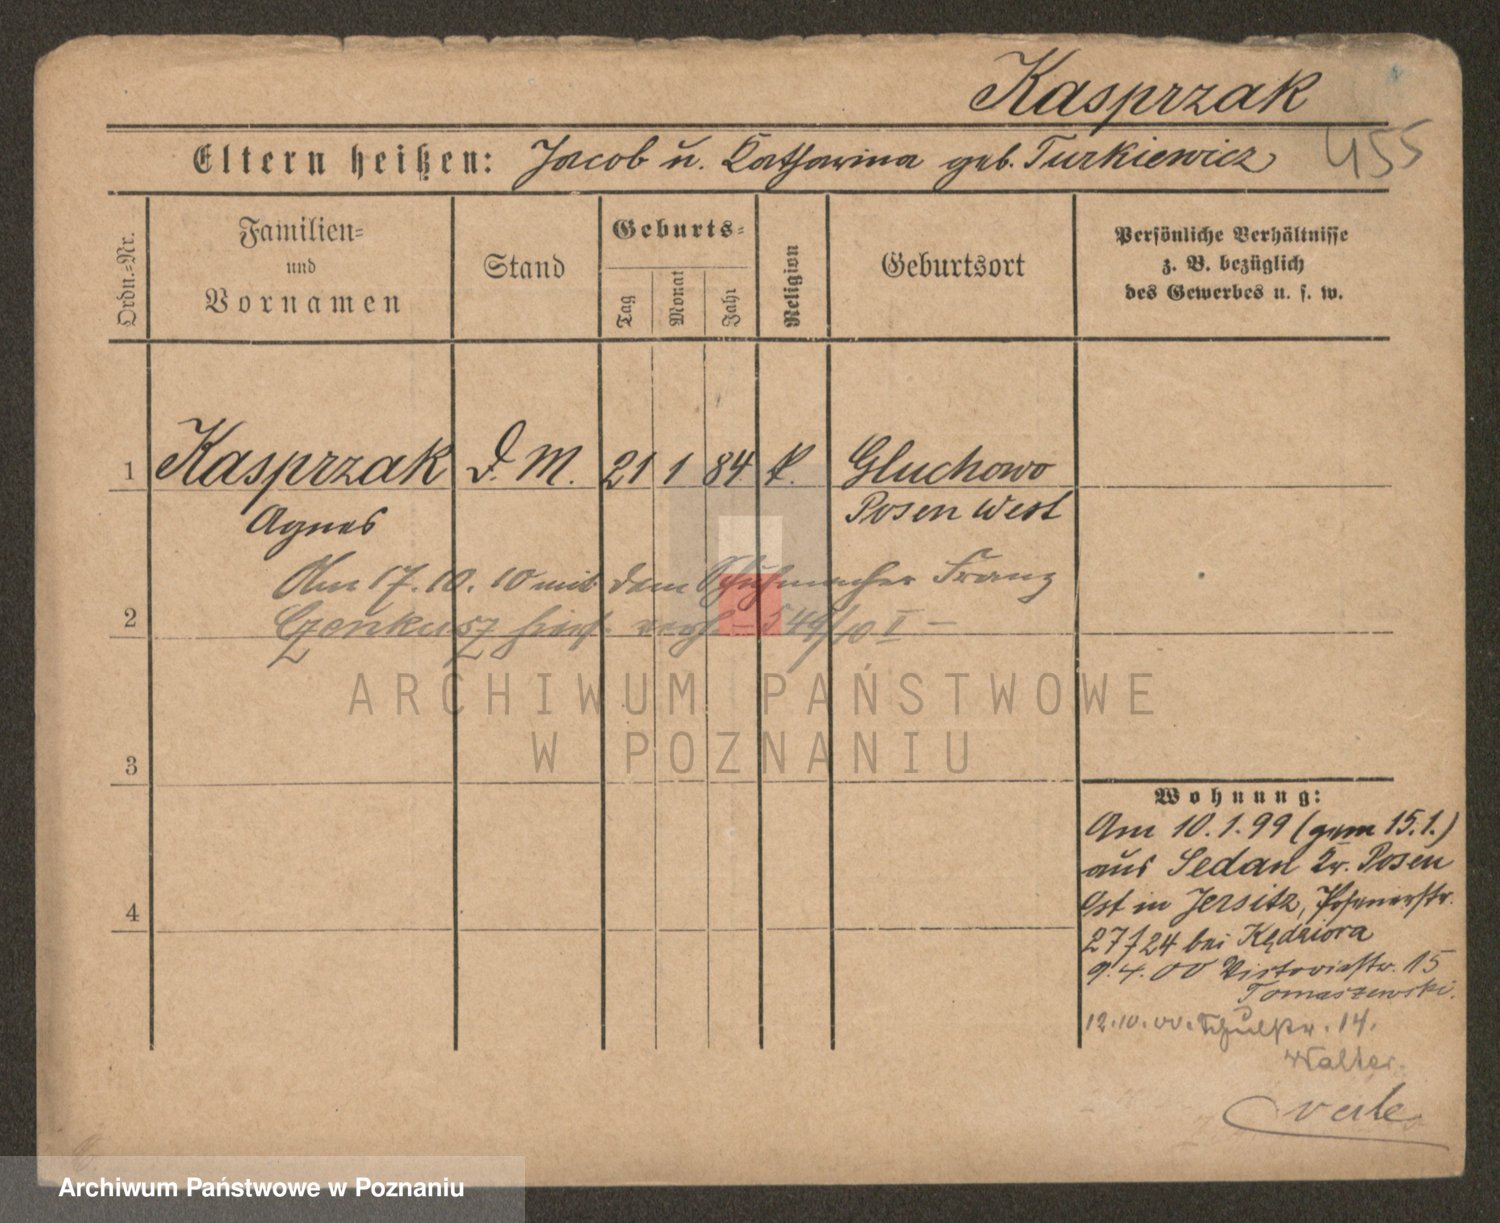 Kasprzak
455
Eltern heißen: Jacob u. Katharina geb. Turkiewicz
Ordn.=Nr.
Familien=
und
Vornamen
Stand
Geburts=
Tag
Monat
Jahr
Religion
Geburtsort
Persönliche Verhältnisse
z. B. bezüglich
des Gewerbes u. s. w.
1 Kasprzak D. M. 21 1 84 k. Gluchowo
Agnes Posen West
Am 17.10.10 mit dem Schuhmacher Franz
2
Czenkusz hier verh. - 549/10 I -
ARCHIWUM PAŃSTWOWE
W POZNANIU
3
4
Wohnung:
Am 10.1.99 (gem 15.1.)
aus Sedan Kr. Posen
Ost in Jersitz, Posenerstr.
27/24 bei Kędziora
9.4.00 Victoriastr. 15
Tomaszewski.
12.10.00. Schulstr. 14.
Walter
Archiwum Państwowe w Poznaniu